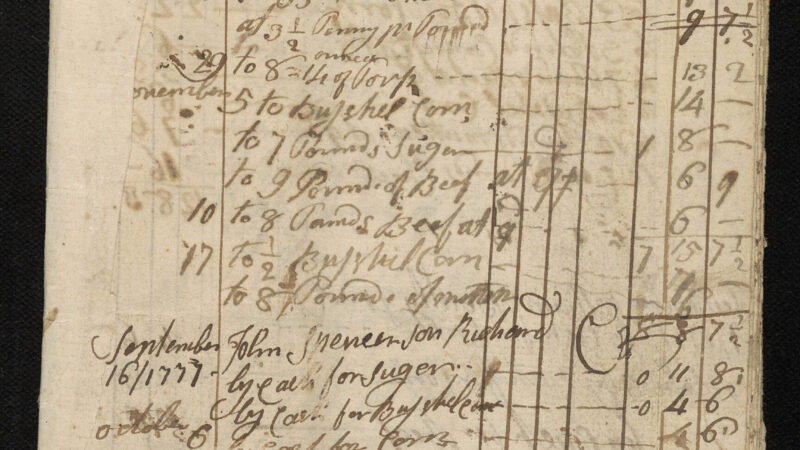 at 3 1/2 Penny pr 9 7 1/2
29 to 8 = 14 ounces of Pork 13 2
November 5 to Bushel Corn 14 —
to 7 Pounds Suger 1 8 —
to 9 Pounds of Beef at 9 6 9
10 to 8 Pounds Beef at 9 6 —
17 to 1/2 Bushel Corn 15 7 1/2
to 8 Pounds of mutton
John Spencer son Richard 8 8 7 1/2
September
16/1777 by Cash for Suger 0 11 8
by Cash for Bushel Corn 0 4 6
october 6 by Cash for Corn 6